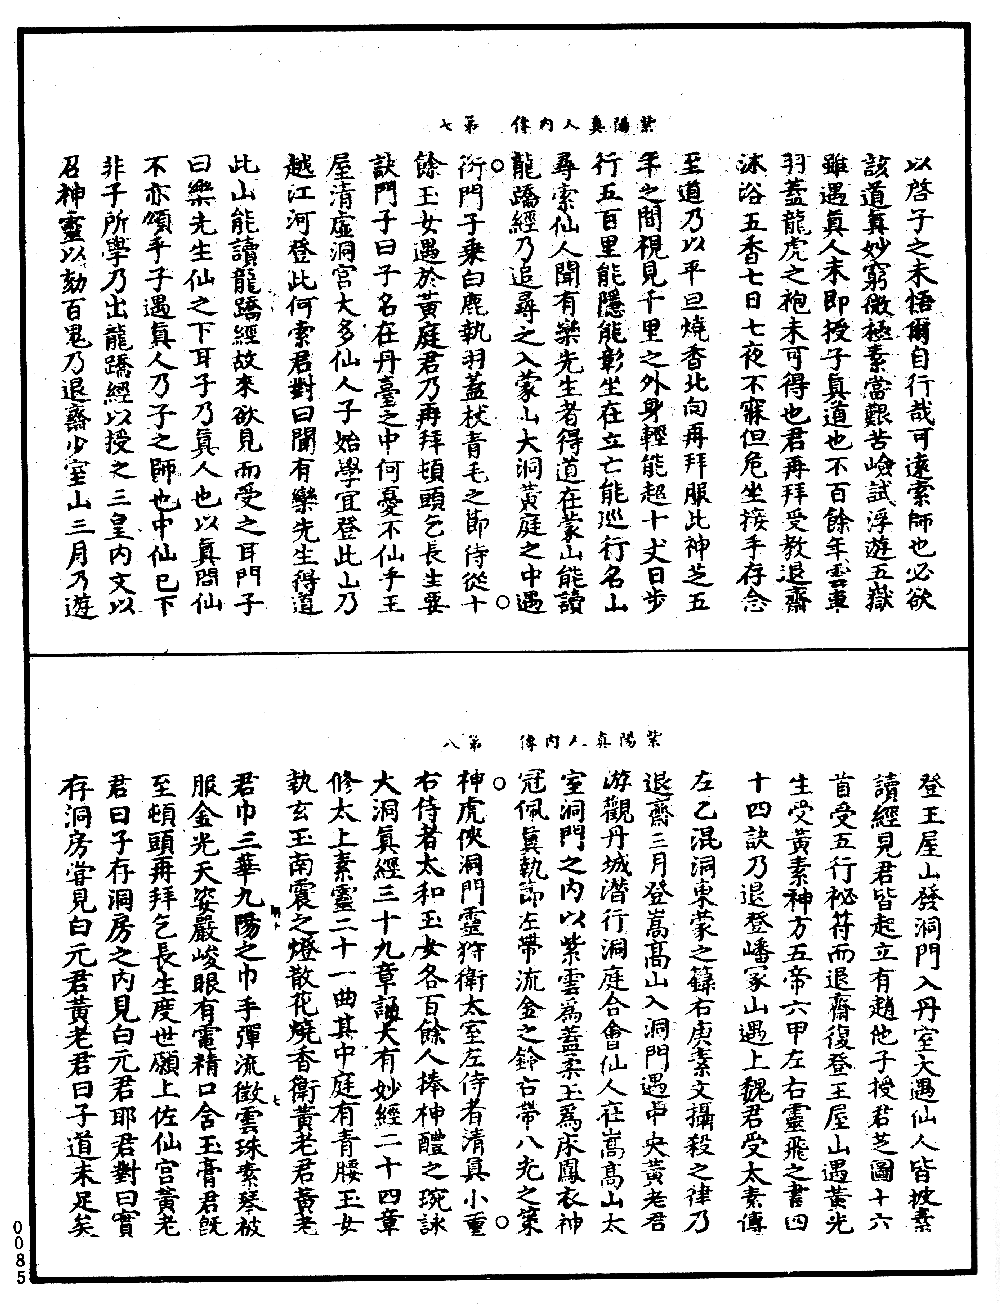 紫陽真人內傳　第七
以啓子之未悟爾自行哉可遠索師也必欲
該道真妙窮微極素當艱苦嶮試浮遊五嶽
雖遇真人未即授子真道也不百餘年雲車
羽蓋龍虎之袍未可得也君再拜受教退齋
沐浴五香七日七夜不寐但危坐接手存念
至道乃以平旦燒香北向再拜服此神芝五
年之間視見千里之外身輕能超十丈日步
行五百里能隱能彰坐在立亡能巡行名山
尋索仙人聞有樂先生者得道在蒙山能讀
龍蹻經乃追尋之入蒙山大洞黃庭之中遇
衍門子乘白鹿執羽蓋杖青毛之節侍從十
餘玉女遇於黃庭君乃再拜頓頭乞長生要
訣門子曰子名在丹臺之中何憂不仙乎王
屋清虛洞宮大多仙人子始學宜登此山乃
越江河登此何索君對曰聞有樂先生得道
此山能讀龍蹻經故來欲見而受之耳門子
曰樂先生仙之下耳子乃真人也以真問仙
不亦傾乎子遇真人乃子之師也中仙已下
非子所學乃出龍蹻經以授之三皇內文以
召神靈以劾百鬼乃退齋少室山三月乃遊
紫陽真人內傳　第八
登王屋山發洞門入丹室大遇仙人皆披素
讀經見君皆起立有趙他子授君芝圖十六
首受五行祕符而退齋復登王屋山遇黃光
生受黃素神方五帝六甲左右靈飛之書四
十四訣乃退登嶓冢山遇上魏君受太素傳
左乙混洞東蒙之籙右庚素文攝殺之律乃
退齋三月登嵩高山入洞門遇中央黃老君
游觀丹城潛行洞庭合會仙人在嵩高山太
室洞門之內以紫雲為蓋柔玉為床鳳衣神
冠佩真執節左帶流金之鈴右帶八光之策
神虎俠洞門靈狩衛太室左侍者清真小童
右侍者太和玉女各百餘人捧神醴之琬詠
大洞真經三十九章誦大有妙經二十四章
修太上素靈二十一曲其中庭有青腰玉女
執玄玉南震之燈散花燒香衛黃老君黃老
君巾三華九陽之巾手彈流徵雲珠素琴被
服金光天姿嚴峻眼有電精口含玉膏君既
至頓頭再拜乞長生度世願上佐仙宮黃老
君曰子存洞房之內見白元君耶君對曰實
存洞房嘗見白元君黃老君曰子道未足矣
0085